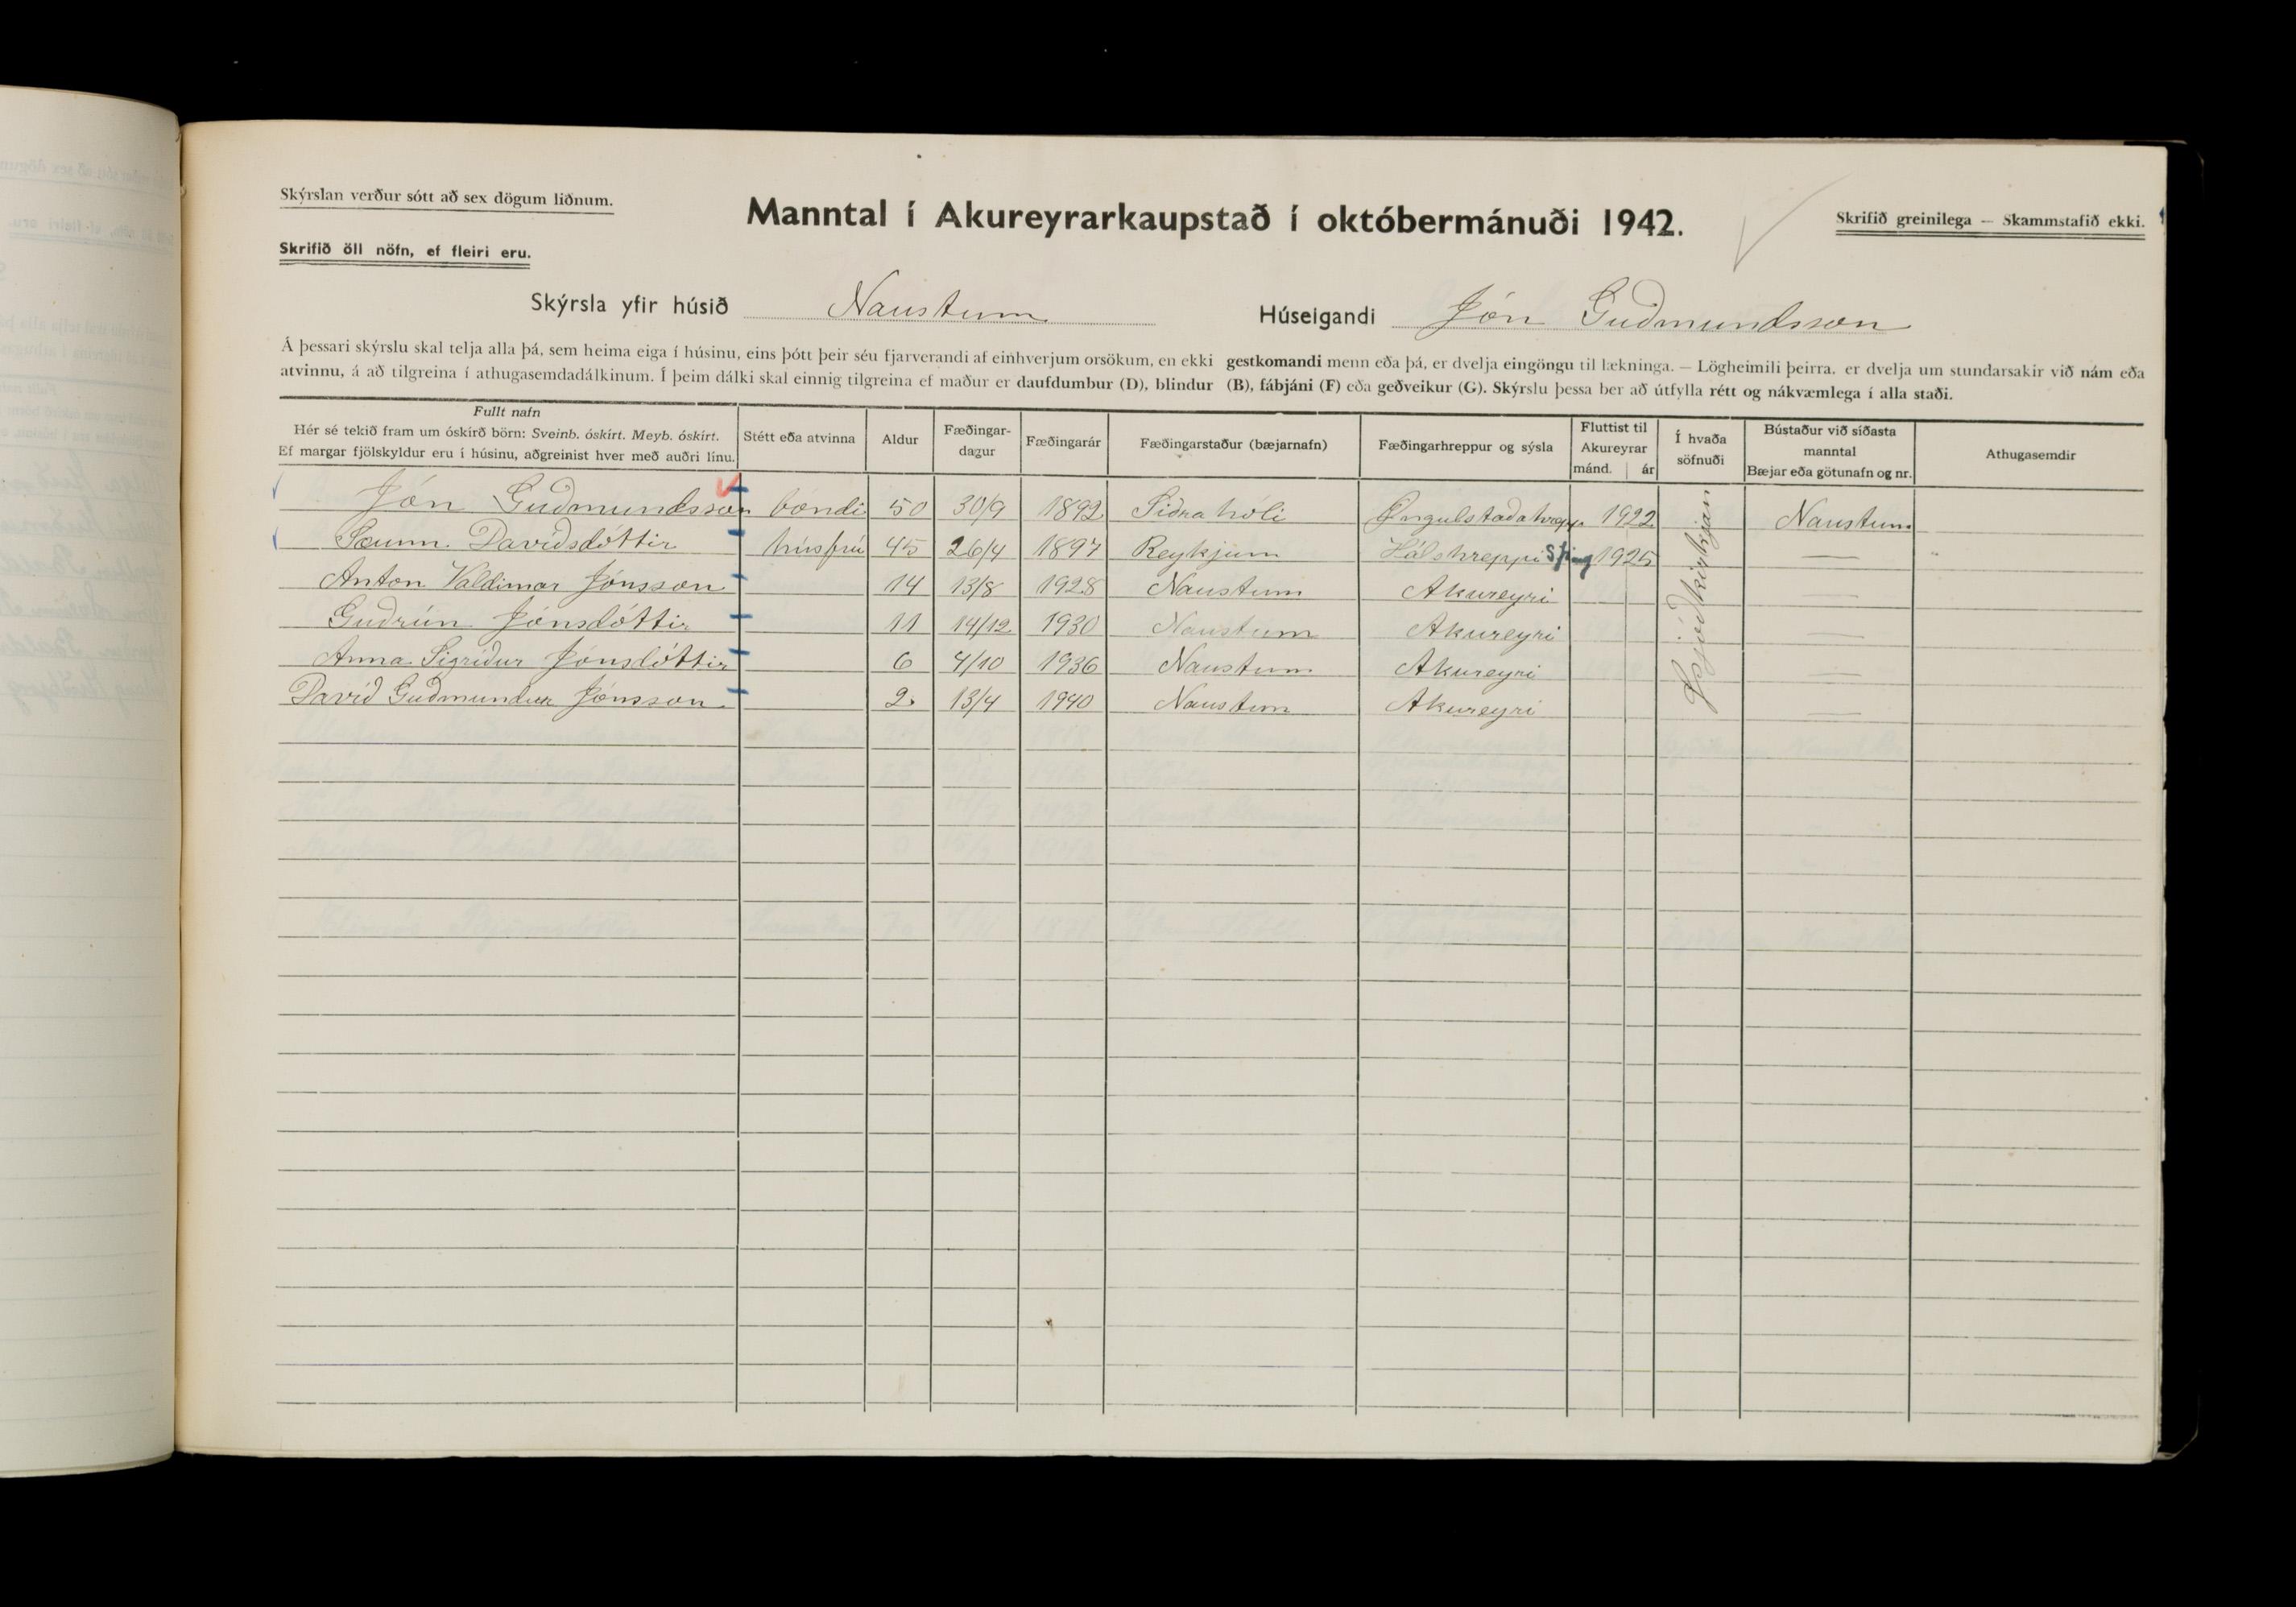 Skýrslan verður sótt að sex dögum liðnum.
Manntal í Akureyrarkaupstað í októbermánuði 1942.
Skrifið greinilega — Skammstafið ekki.
Skrifið öll nöfn, ef fleiri eru.
Skýrsla yfir húsið Naustum Húseigandi Jón Guðmundsson
Á þessari skýrslu skal telja alla þá, sem heima eiga í húsinu, eins þótt þeir séu fjarverandi af einhverjum orsökum, en ekki gestkomandi menn eða þá, er dvelja eingöngu til lækninga. — Lögheimili þeirra, er dvelja um stundarsakir við nám eða
atvinnu, á að tilgreina í athugasemdadálkinum. Í þeim dálki skal einnig tilgreina ef maður er daufdumbur (D), blindur (B), fábjáni (F) eða geðveikur (G). Skýrslu þessa ber að útfylla rétt og nákvæmlega í alla staði.
Fullt nafn
Hér sé tekið fram um óskírð börn: Sveinb. óskírt. Meyb. óskírt.
Ef margar fjölskyldur eru í húsinu, aðgreinist hver með auðri línu.
Stétt eða atvinna
Aldur
Fæðingar-
dagur
Fæðingarár
Fæðingarstaður (bæjarnafn)
Fæðingarhreppur og sýsla
Fluttist til
Akureyrar
mánd. ár
Í hvaða
söfnuði
Bústaður við síðasta
manntal
Bæjar eða götunafn og nr.
Athugasemdir
Jón Guðmundsson bóndi 50 30/9 1892 Sidrahóli Öngulstaðahrepp 1922 Naustum
Sæunn Davíðsdóttir húsfrú 45 26/4 1897 Reykjum Hálshreppi S/Þing 1925 —
Anton Valdimar Jónsson 14 13/8 1928 Naustum Akureyri —
Guðrún Jónsdóttir 11 14/12 1930 Naustum Akureyri —
Anna Sigríður Jónsdóttir 6 4/10 1936 Naustum Akureyri —
Davíð Guðmundur Jónsson 2 13/4 1940 Naustum Akureyri —